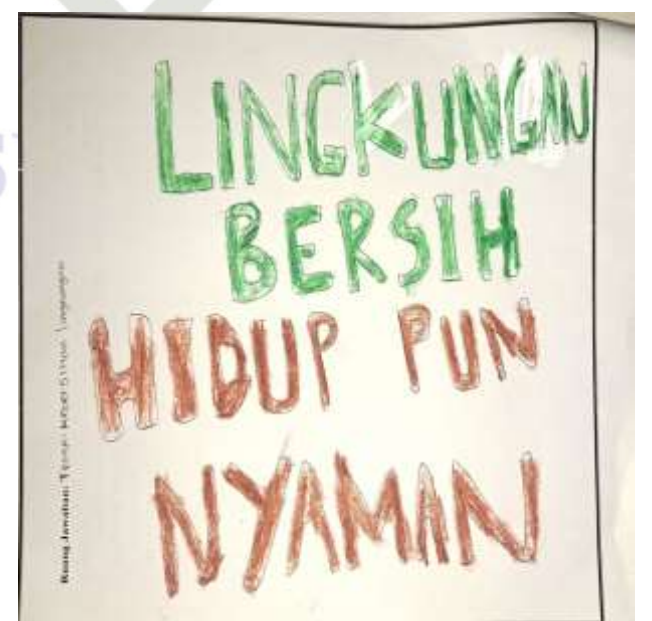 LINGKUNGAN
BERSIH
HIDUP PUN
NYAMAN
Ruang Jawaban: Tema: Kebersihan Lingkungan